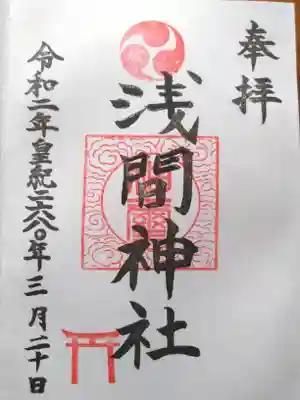 奉拝
浅間神社
令和二年皇紀二六八〇年三月二十日